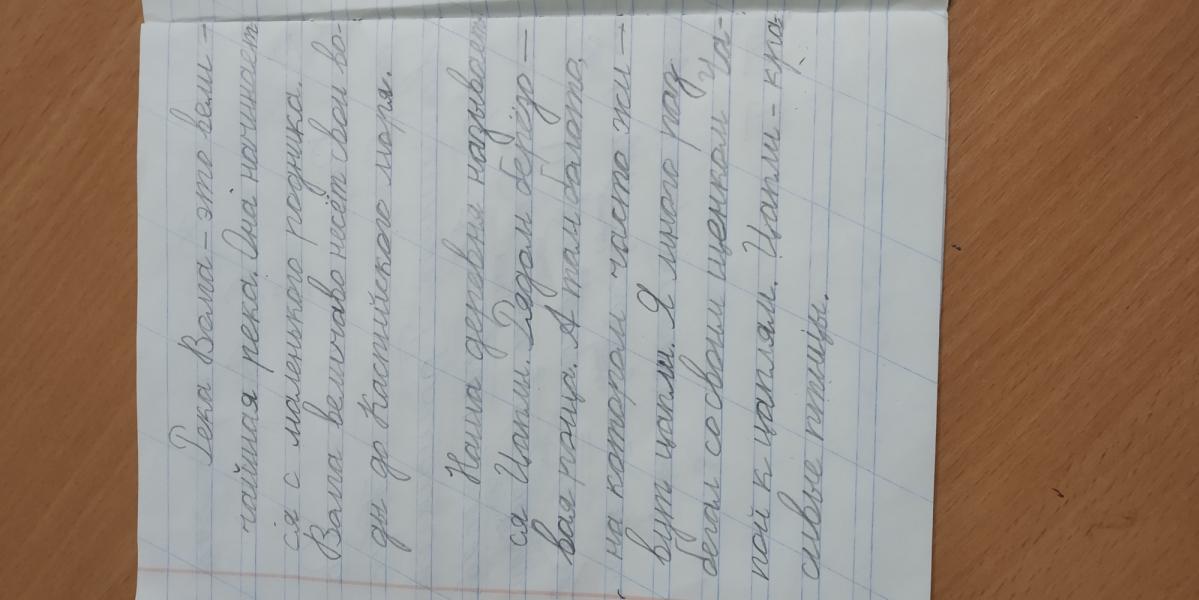 Река Волга - это вели-
чайшая река. Она начинает
ся с маленького родника.
Волга величаво несёт свои во-
ды до Каспийского моря.
Наша деревня называет
ся Цапли. Рядом берёзо-
вая роща. А там болото,
на котором часто жи-
вут цапли. Я много раз
бегал со своим щенком Ча-
пой к цаплям. Цапли - кра-
сивые птицы.